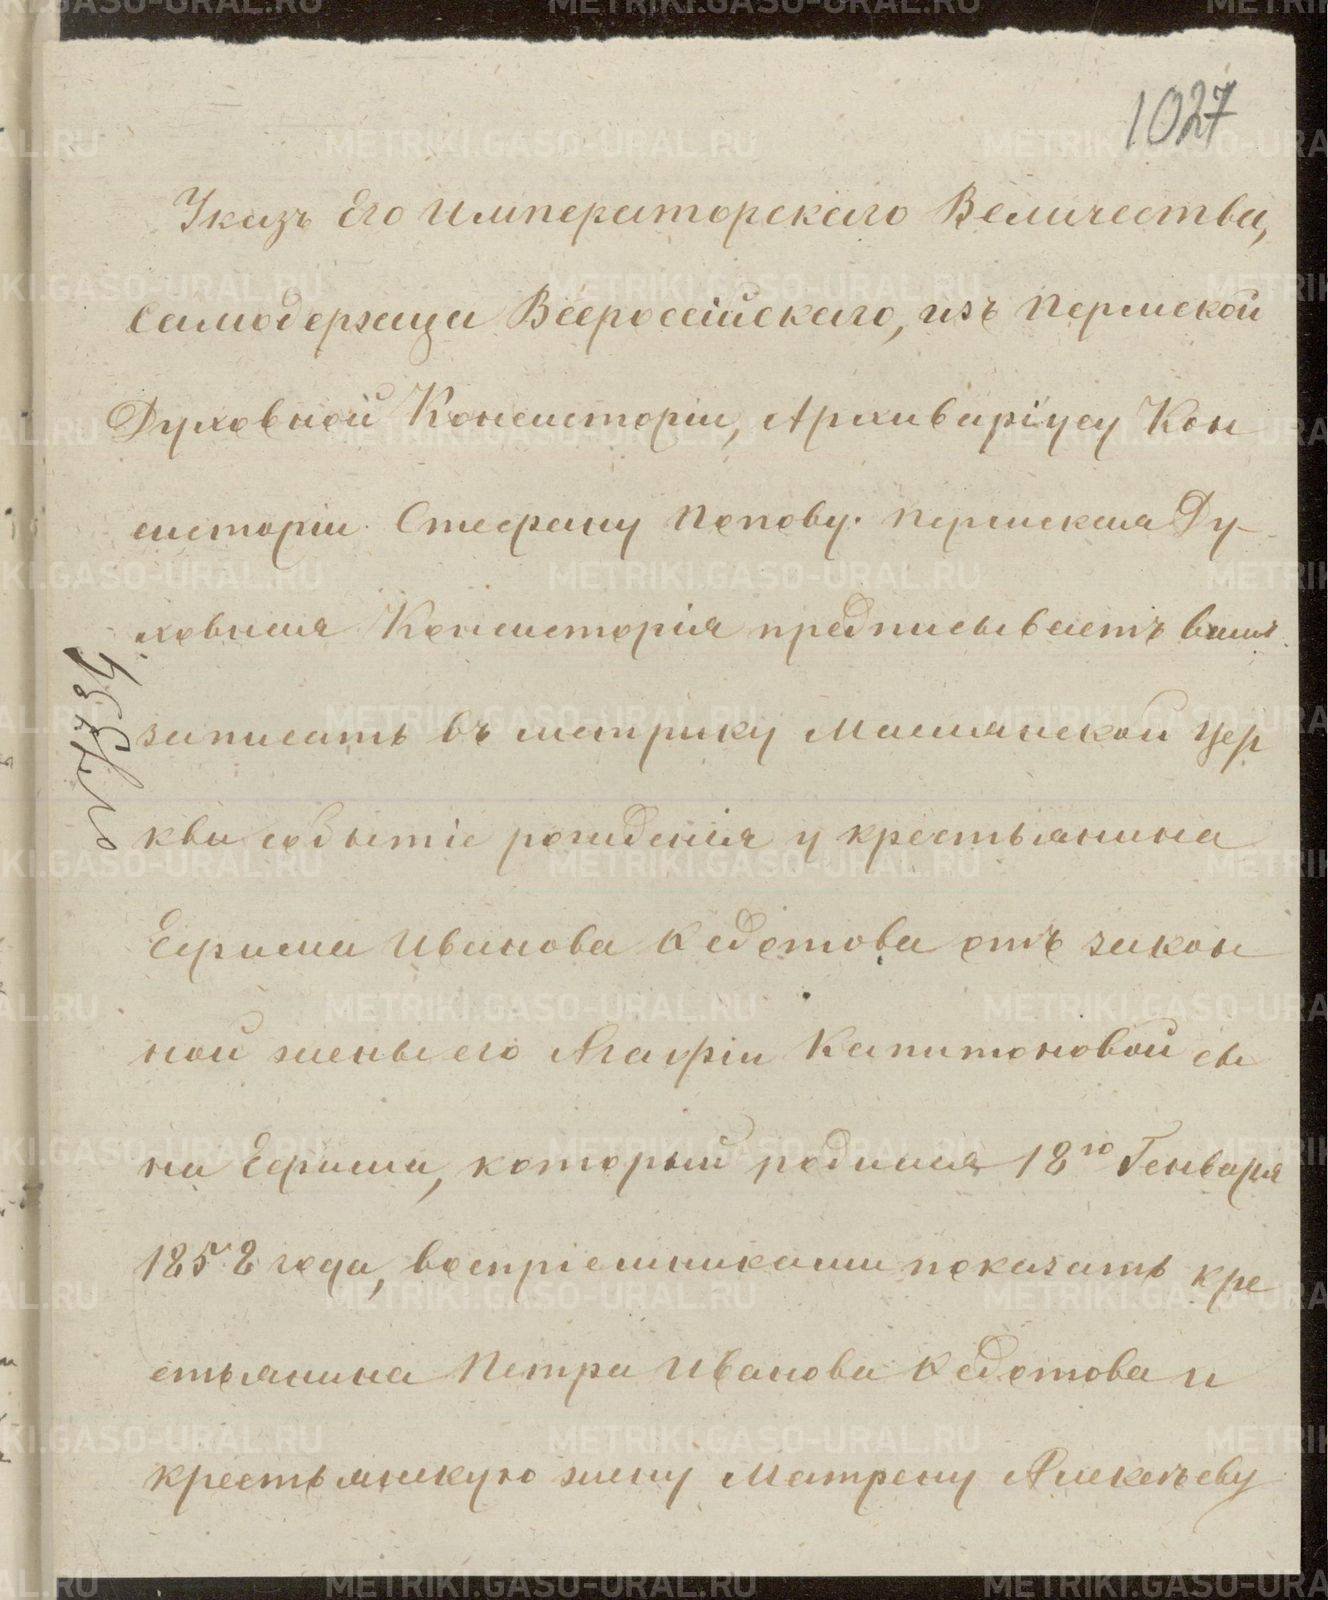 1027
Указъ Его Императорскаго Величества,
Самодержца Всероссійскаго, изъ Пермской
Духовной Консисторіи, Архиваріусу Кон
систоріи Стефану Попову. Пермская Ду-
ховная Консисторія предписываетъ вамъ
записать въ метрику Маминской Цер
кви событіе рожденія у крестьянина
Ефима Иванова Кедотова отъ закон
ной жены его Агафіи Капитоновой сы
на Ефима, который родился 18го Генваря
1858 года, воспріемниками показать кре
стьянина Петра Иванова Кедотова и
крестьянскую жену Матрену Алексѣеву
METRIKI.GASO-URAL.RU